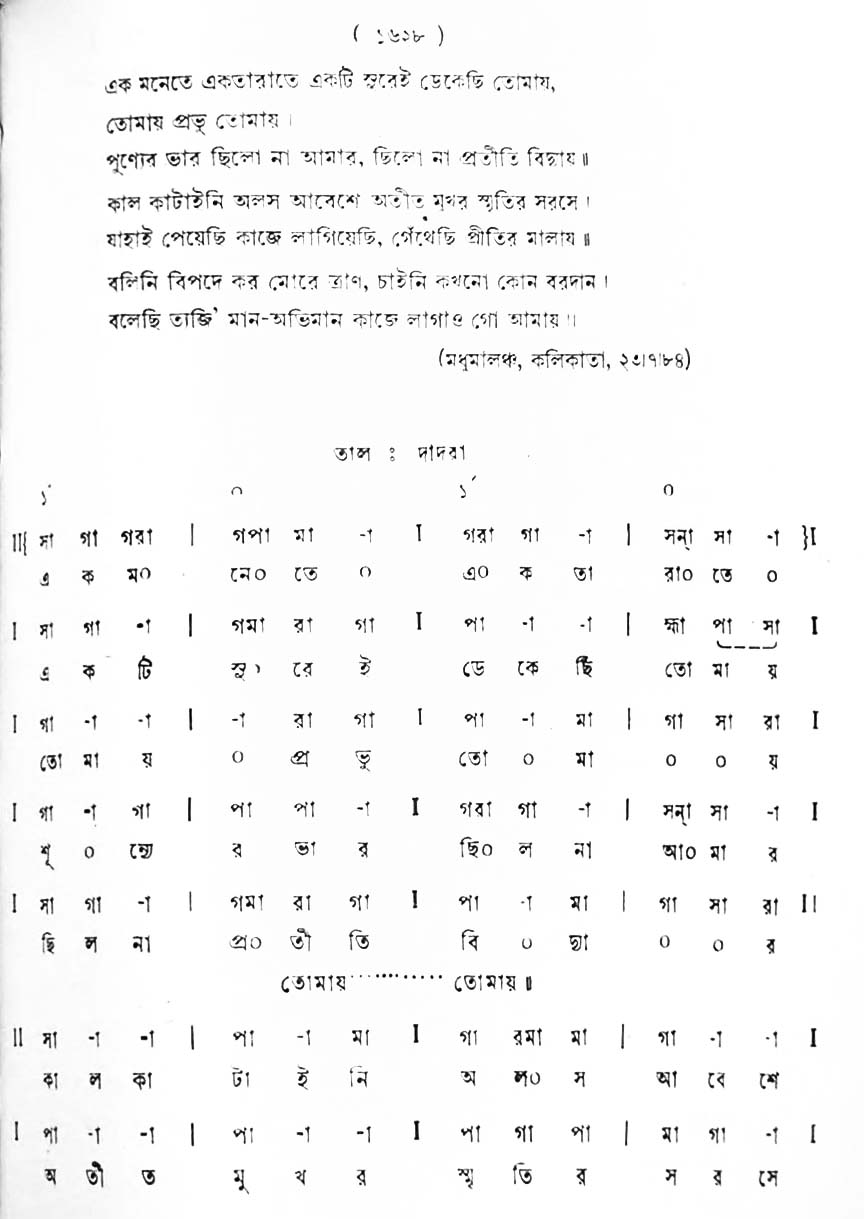 ( ১৬২৮ )
এক মনেতে একতারাতে একটি সুরেই ডেকেছি তোমায়,
তোমায় প্রভু তোমায় ।
পুণ্যের ভার ছিলো না আমার, ছিলো না প্রতীতি বিদ্যায ॥
কাল কাটাইনি অলস আবেশে অতীত মুখর স্মৃতির সরসে ।
যাহাই পেয়েছি কাজে লাগিয়েছি, গেঁথেছি প্রীতির মালায ॥
বলিনি বিপদে কর মোরে ত্রাণ, চাইনি কখনো কোন বরদান ।
বলেছি ত্যজি’ মান-অভিমান কাজে লাগাও গো আমায় ॥
(মধুমালঞ্চ, কলিকাতা, ২৩।৭।৮৪)
তাল ঃ দাদরা
১´ ০ ১´ ০
II{ সা গা গরা | গপা মা -া I গরা গা -া | সন্া সা -া }I
এ ক ম০ নে০ তে ০ এ০ ক তা রা০ তে ০
I সা গা -া | গমা রা গা I পা -া -া | হ্মা পা সা I
এ ক টি সু০ রে ই ডে কে ছি তো মা য়
I গা -া -া | -া রা গা I পা -া মা | গা সা রা I
তো মা য় ০ প্র ভু তো ০ মা ০ ০ য়
I গা -া গা | পা পা -া I গরা গা -া | সন্া সা -া I
পূ ০ ণ্যে র ভা র ছি০ ল না আ০ মা র
I সা গা -া | গমা রা গা I পা -া মা | গা সা রা II
ছি ল না প্র০ তী তি বি ০ দ্যা ০ ০ র
তোমায়············ তোমায় ॥
II সা -া -া | পা -া মা I গা রমা মা | গা -া -া I
কা ল কা টা ই নি অ ল০ স আ বে শে
I পা -া -া | পা -া -া I পা গা পা | মা গা -া I
অ তী ত মু খ র স্মৃ তি র স র সে